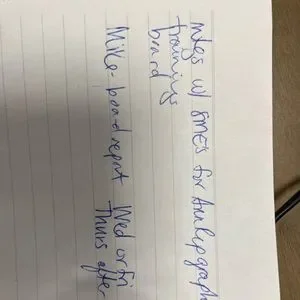 mtgs w/ SMEs for
trainings
board
Mike - board report Wed or Fri
Thurs after